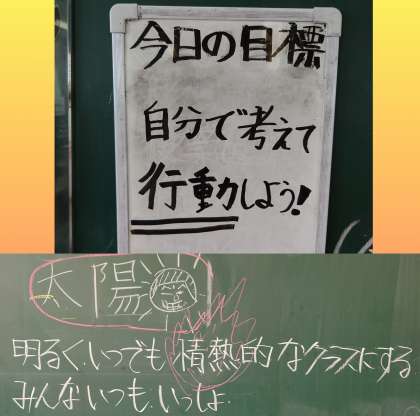 今日の目標
自分で考えて
行動しよう!
太陽
明るく、いつでも情熱的なクラスにする
みんないつも、いっしょ.